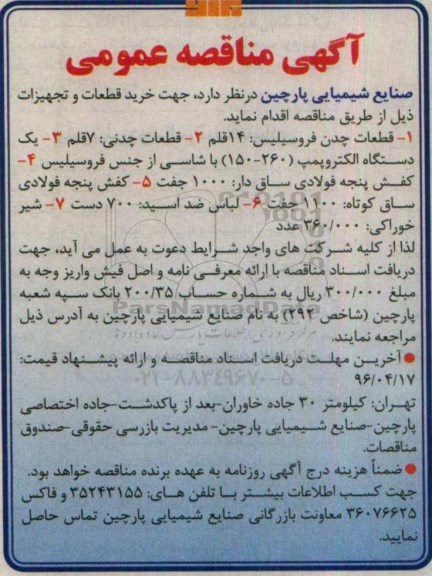 آگهی مناقصه عمومی
صنایع شیمیایی پارچین درنظر دارد، جهت خرید قطعات و تجهیزات
ذیل از طریق مناقصه اقدام نماید.
۱- قطعات چدن فروسیلیس: ۱۴قلم ۲- قطعات چدنی: ۷قلم ۳- یک
دستگاه الکتروپمپ (۲۶۰-۱۵۰) با شاسی از جنس فروسیلیس ۴-
کفش پنجه فولادی ساق دار: ۱۰۰۰ جفت ۵- کفش پنجه فولادی
ساق کوتاه: ۱۱۰۰ جفت ۶- لباس ضد اسید: ۷۰۰ دست ۷- شیر
خوراکی: ۳۶۰/۰۰۰ عدد
لذا از کلیه شرکت های واجد شرایط دعوت به عمل می آید، جهت
دریافت اسناد مناقصه با ارائه معرفی نامه و اصل فیش واریز وجه به
مبلغ ۳۰۰/۰۰۰ ریال به شماره حساب ۲۰۰/۳۵ بانک سپه شعبه
پارچین (شاخص ۲۹۳) به نام صنایع شیمیایی پارچین به آدرس ذیل
مراجعه نمایند.
● آخرین مهلت دریافت اسناد مناقصه و ارائه پیشنهاد قیمت:
۹۶/۰۴/۱۷
تهران: کیلومتر ۳۰ جاده خاوران-بعد از پاکدشت-جاده اختصاصی
پارچین-صنایع شیمیایی پارچین- مدیریت بازرسی حقوقی-صندوق
مناقصات.
● ضمناً هزینه درج آگهی روزنامه به عهده برنده مناقصه خواهد بود.
جهت کسب اطلاعات بیشتر با تلفن های: ۳۵۲۴۳۱۵۵ و فاکس
۳۶۰۷۶۶۲۵ معاونت بازرگانی صنایع شیمیایی پارچین تماس حاصل
نمایید.
ParsNamadData
۰۲۱-۸۸۳۴۹۶۷۰-۵